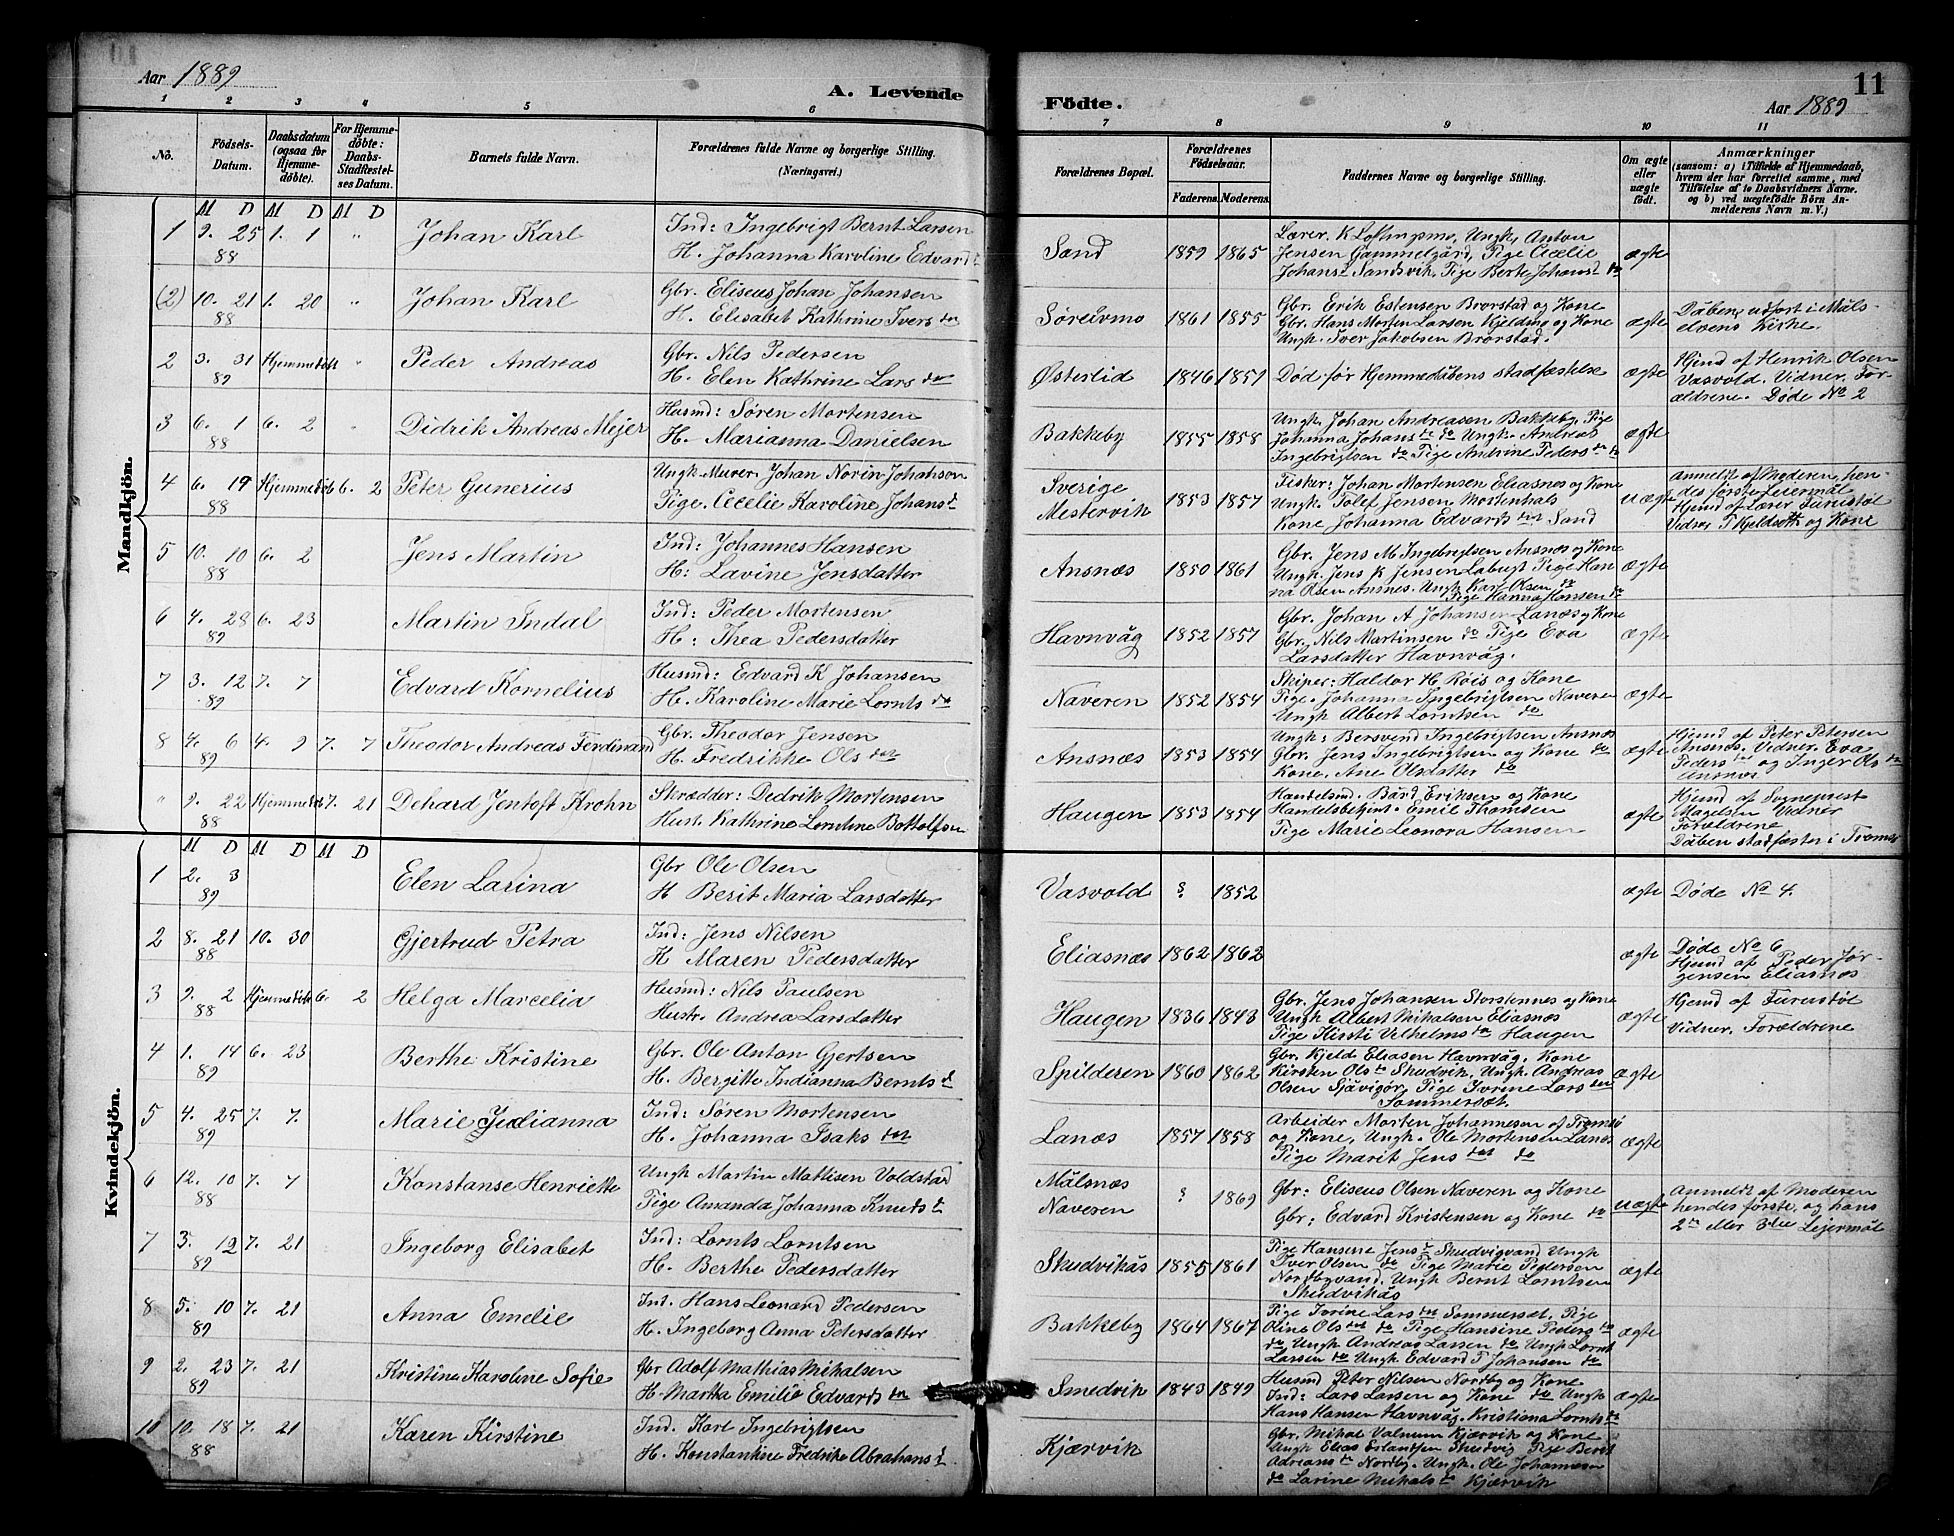 Aar 1889
A. Levende
Födte.
11
Aar 1889
1 2 3 4 5 6 7 8 9 10 11
No.
Födsels-Datum.
Daabsdatum (ogsaa for Hjemmedöbte).
For Hjemmedöbte: Daabs-Stadfæstelses Datum.
Barnets fulde Navn.
Forældrenes fulde Navne og borgerlige Stilling. (Næringsvei.)
Forældrenes Bopæl.
Forældrenes Födselsaar.
Faderens. Moderens.
Faddernes Navne og borgerlige Stilling.
Om ægte eller uægte födt.
Anmærkninger
(saasom: a) i Tilfælde af Hjemmedaab, hvem der har forrettet samme, med Tilföielse af to Daabsvidners Navne. og b) ved uægtefödte Börn Anmelderens Navn m. V.)
Mandkjön.
M D M D M D
1 9. 25 88 1. 1 " Johan Karl
Ind: Ingebrigt Bernt Larsen
H. Johanna Karoline Edvardsd
Sand 1859 1865
Lærer. K Loltmpmo, Ungk, Anton
Jensen Gammelgård, Pige Cecelie
Johansd Sandsvik, Pige Berte Johansd do
ægte
(2) 10. 21 88 1. 20 " Johan Karl
Gbr. Eliseus Johan Johansen
H. Elisabet Kathrine Ivers dtr
Søreivmo 1861 1855
Gbr. Erik Estensen Brorstad og Kone
Gbr. Hans Morten Larsen Kjeldmo og Kone
Ungk. Iver Jakobsen Brorstad.
ægte
Dåben udført i Måls-
elvens Kirke.
2 3. 31 89 Hjemmedøbt " Peder Andreas
Gbr. Nils Pedersen
H. Elen Kathrine Lars dtr
Østerlid 1846 1851
Død før Hjemmedåbens stadfæstelse
ægte
Hjemd af Henrik Olsen
Vasvold. Vidner. For-
ældrene. Døde No 2
3 6. 1 88 6. 2 " Didrik Andreas Mejer
Husmd: Søren Mortensen
H. Marianna Danielsen
Bakkeby 1855 1858
Ungk. Johan Andreasen Bakkeby. Pige
Johanna Johans dtr do Ungk. Andreas
Ingebrigtsen do Pige Andrine Peders dtr do
ægte
4 6. 19 88 Hjemmedøbt 6. 2 Peter Gunerius
Ungk. Murer. Johan Norin Johanson
Pige. Cecelie Karoline Johans d
Sverige
Mestervik
1853 1857
Fisker: Johan Mortensen Eliasnes og Kone
Ungk. Tolef Jensen Mortenhals
Kone Johanna Edvards dtr Sand
uægte
anmeldt af Moderen, hen-
des første Leiermål
Hjemd af Lærer Furustøl
Vidner T Kjeldseth og Kone
5 10. 10 88 6. 2 Jens Martin
Ind: Johannes Hansen
H: Lavine Jensdatter
Ansnæs 1850 1861
Gbr. Jens M Ingebrigtsen Ansnæs og Kone
Ungk. Jens K Jensen Labugt Pige Han
na Olsen Annes. Ungk Karl Olsen do
Pige Hanna Hansen do
ægte
6 4. 28 89 6. 23 Martin Indal
Ind: Peder Mortensen
H: Thea Pedersdatter
Havnvåg 1852 1857
Gbr. Johan A Johansen Lanæs og Kone
Gbr. Nils Martinsen do Pige Eva
Larsdatter Havnvåg.
ægte
7 3. 12 89 7. 7 Edvard Kornelius
Husmd: Edvard K Johansen
H. Karoline Marie Lornts dtr
Naveren 1852 1854
Skiper: Haldor H Røis og Kone
Pige. Johanna Ingebrigtsen Naveren
Ungk Albert Lorntsen do
ægte
8 4. 6 89 4. 9 7. 7 Theodor Andreas Ferdinand
Gbr. Theodor Jensen
H. Fredrikke Ols dtr
Ansnæs 1853 1854
Ungk: Bersvend Ingebrigtsen Ansnæs
Gbr. Jens Ingebrigtsen og Kone do
Kone. Ane Olsdatter do
ægte
Hjemd af Peter Petersen
Ansnæs. Vidner. Eva
Peders dtr og Inger Ols dtr
Ansnæs
" 9. 22 88 Hjemmedøbt 7. 21 Dehard Jentoft Krohn
Skrædder: Dedrik Mortensen
Hust. Kathrine Lorntine Bottolfsen
Haugen 1853 1854
Handelsmd. Bård Eriksen og Kone
Handelsbetjent. Emil Thomsen
Pige Marie Leonora Hansen
ægte
Hjemd af Sogneprest
Magelsen Vidner
Forældrene
Dåben stadfæstet i Tromsø
Kvindekjön.
M D M D M D
1 2. 3 89 Elen Larina
Gbr Ole Olsen
H Berit Maria Larsdatter
Vasvold ? 1852
ægte
Døde No 4.
2 8. 21 88 10. 30 Gjertrud Petra
Ind: Jens Nilsen
H Maren Pedersdatter
Eliasnæs 1862 1862
ægte
Døde No 6
Hjemd af Peder Jør-
gensen Eliasnæs
3 9. 2 88 Hjemmedøbt 6. 2 Helga Marcelia
Husmd: Nils Paulsen
Hustr. Andrea Larsdatter
Haugen 1836 1843
Gbr. Jens Johansen Storstennes og Kone
Ungk Albert Mikalsen Eliasnæs
Pige Kirsti Vilhelms dtr Haugen
ægte
Hjemd af Furustøl
Vidner. Forældrene
4 1. 14 89 6. 23 Berthe Kristine
Gbr. Ole Anton Gjertsen
H. Bergitte Indianna Bernts d
Spilderen 1860 1862
Gbr. Kjeld Eliasen Havnvåg. Kone
Kirsten Ols dtr Skudvik, Ungk. Andreas
Olsen Sjåvigør, Pige Ivrine Lars dtr
Sommersæt.
ægte
5 4. 25 89 7. 7. Marie Judianna
Ind: Søren Mortensen
H. Johanna Isaks dtr
Lanæs 1857 1858
Arbeider Morten Johannesen af Tromsø
og Kone, Ungk. Ole Mortensen Lanæs
Pige Marit Jens dtr do
ægte
6 12. 10 88 7. 7 Konstanse Henriette
Ungk Martin Mathisen Voldstad
Pige Amanda Johanna Knuds d
Målsnæs
Naveren
? 1869
Gbr: Eliseus Olsen Naveren og Kone
Gbr: Edvard Kristensen og Kone do
uægte
Anmeldt af Moderen
hendes første, og hans
2den eller 3die Lejermål
7 3. 12 89 7. 21 Ingeborg Elisabet
Ind: Lornts Lorntsen
H. Berthe Pedersdatter
Skudvikås 1855 1861
Pige Hansine Jens d Skudvigvand Ungk
Iver Olsen do Pige Marie Pedersen
Nordbyvand. Ungk Bernt Lorntsen
Skudvikås
ægte
8 5. 10 89 7. 21 Anna Emelie
Int. Hans Leonard Pedersen
H. Ingeborg Anna Petersdatter
Bakkeby 1864 1867
Pige Ivrine Lars dtr Sommersæt, Pige
Oline Ols dtr do Pige Hansine Peders dtr
do Ungk Andreas Larsen do Ungk Lornt
Larsen do Ungk Edvard P Johansen do
ægte
9 2. 23 89 7. 21 Kristine Karoline Sofie
Gbr Adolf Mathias Mikalsen
H. Martha Emilie Edvards dtr
Smedvik 1843 1849
Husmd Peter Nilsen Nordby og Kone
Ind: Lars Larsen og Kone do Ungk
Hans Hansen Havnvåg. Kristiana Lornts dtr
ægte
10 10. 18 88 7. 21 Karen Kirstine
Ind. Karl Ingebrigtsen
H. Konstantine Fredrike Abrahans d
Kjærvik
Gbr. Mikal Valnum Kjærvik og Kone
Ungk Elias Erlandsen Skudvig Pige Berit
Adrians dtr Nordby. Ungk. Ole Johannesen
do Larine Mikals dtr Kjærvik